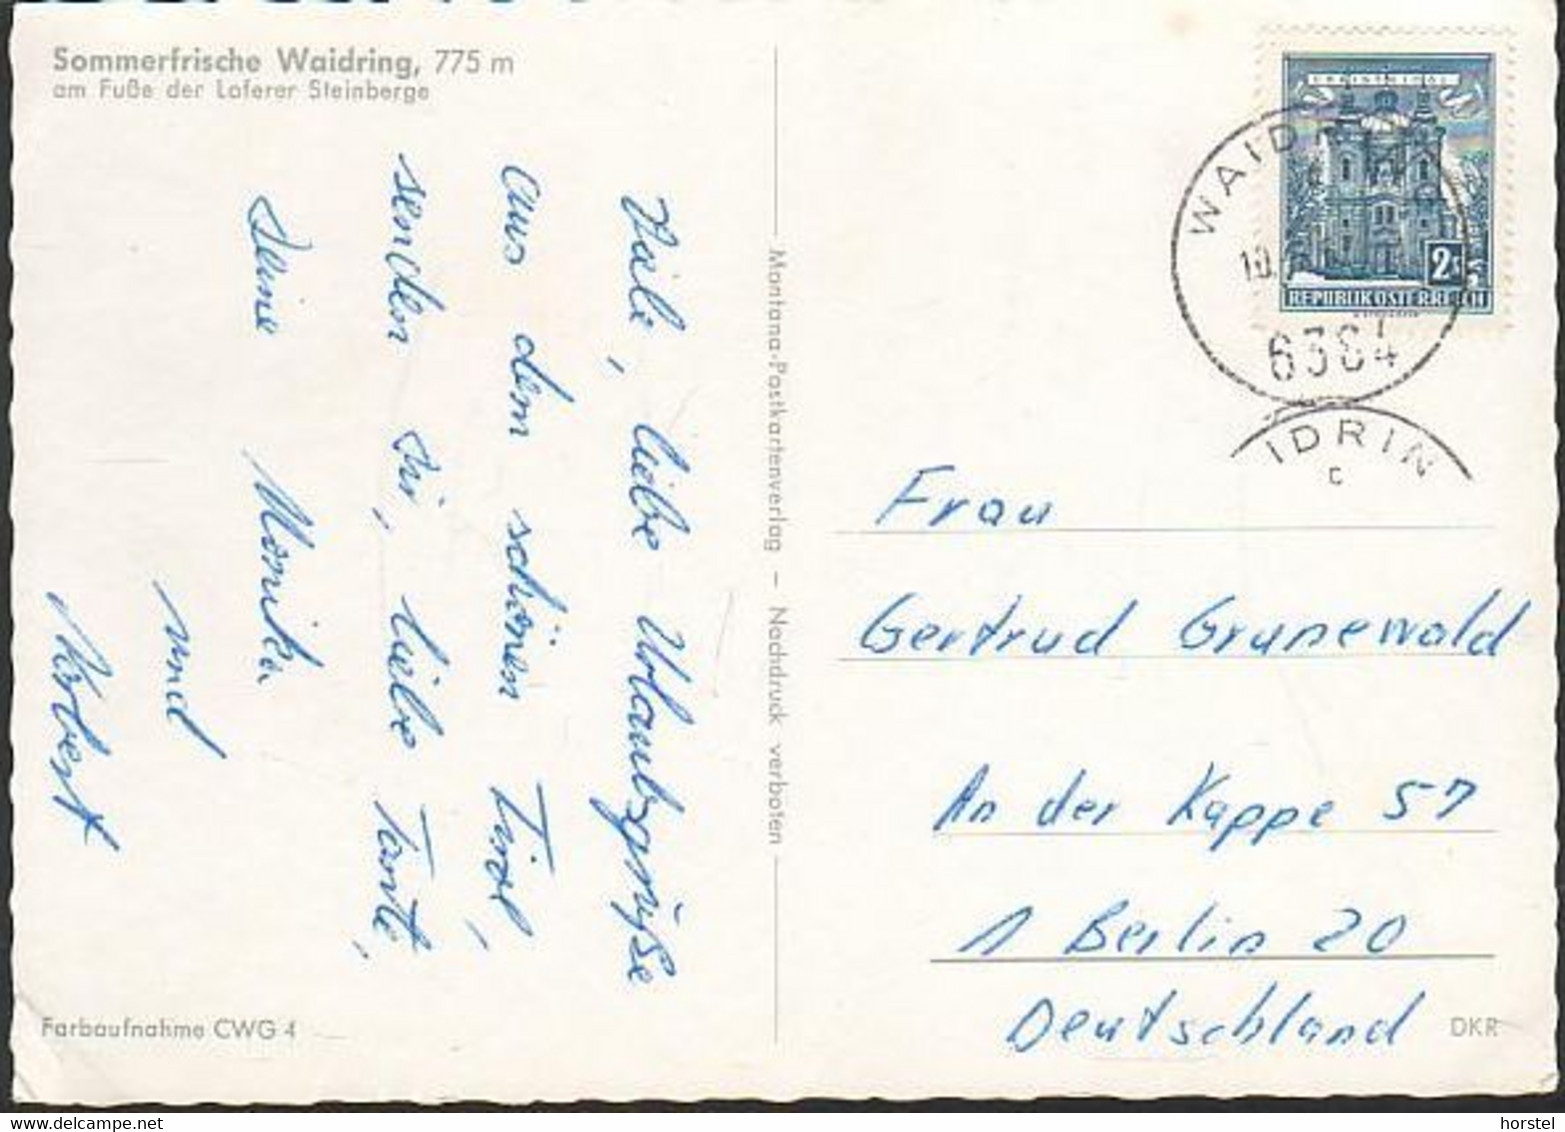 Sommerfrische Waidring, 775 m
am Fuße der Loferer Steinberge
Viele, liebe Urlaubsgrüße
aus dem schönen Tirol,
senden Dir, liebe Tante,
Deine Monika
und
Norbert
Montana-Postkartenverlag – Nachdruck verboten
CHRISTKINDL
2 S
REPUBLIK ÖSTERREICH
WAIDR
10.
6384
IDRIN
c
Frau
Gertrud Grunewald
An der Kappe 57
1 Berlin 20
Deutschland
Farbaufnahme CWG 4
DKR
© horstel